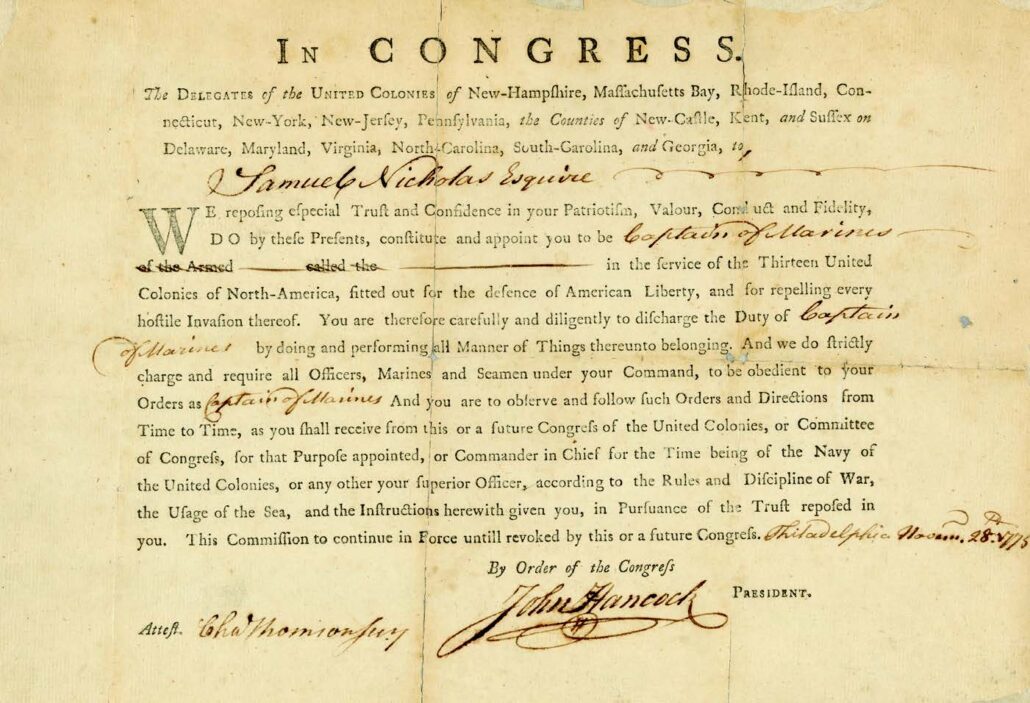 IN CONGRESS.
The DELEGATES of the UNITED COLONIES of New-Hampſhire, Maſſachuſetts Bay, Rhode-Iſland, Con-
necticut, New-York, New-Jerſey, Pennſylvania, the Counties of New-Caſtle, Kent, and Suſſex on
Delaware, Maryland, Virginia, North-Carolina, South-Carolina, and Georgia, to
Samuel Nicholas Esquire
WE repoſing eſpecial Truſt and Confidence in your Patriotiſm, Valour, Conduct and Fidelity,
DO by theſe Preſents, conſtitute and appoint you to be Captain of Marines
of the Armed called the in the ſervice of the Thirteen United
Colonies of North-America, fitted out for the defence of American Liberty, and for repelling every
hoſtile Invaſion thereof. You are therefore carefully and diligently to diſcharge the Duty of Captain
of Marines by doing and performing all Manner of Things thereunto belonging. And we do ſtrictly
charge and require all Officers, Marines and Seamen under your Command, to be obedient to your
Orders as Captain of Marines And you are to obſerve and follow ſuch Orders and Directions from
Time to Time, as you ſhall receive from this or a future Congreſs of the United Colonies, or Committee
of Congreſs, for that Purpoſe appointed, or Commander in Chief for the Time being of the Navy of
the United Colonies, or any other your ſuperior Officer, according to the Rules and Diſcipline of War,
the Uſage of the Sea, and the Inſtructions herewith given you, in Purſuance of the Truſt repoſed in
you. This Commiſſion to continue in Force untill revoked by this or a future Congreſs. Philadelphia Novem. 28th 1775
By Order of the Congreſs
John Hancock PRESIDENT.
Atteſt. Cha Thomson secy